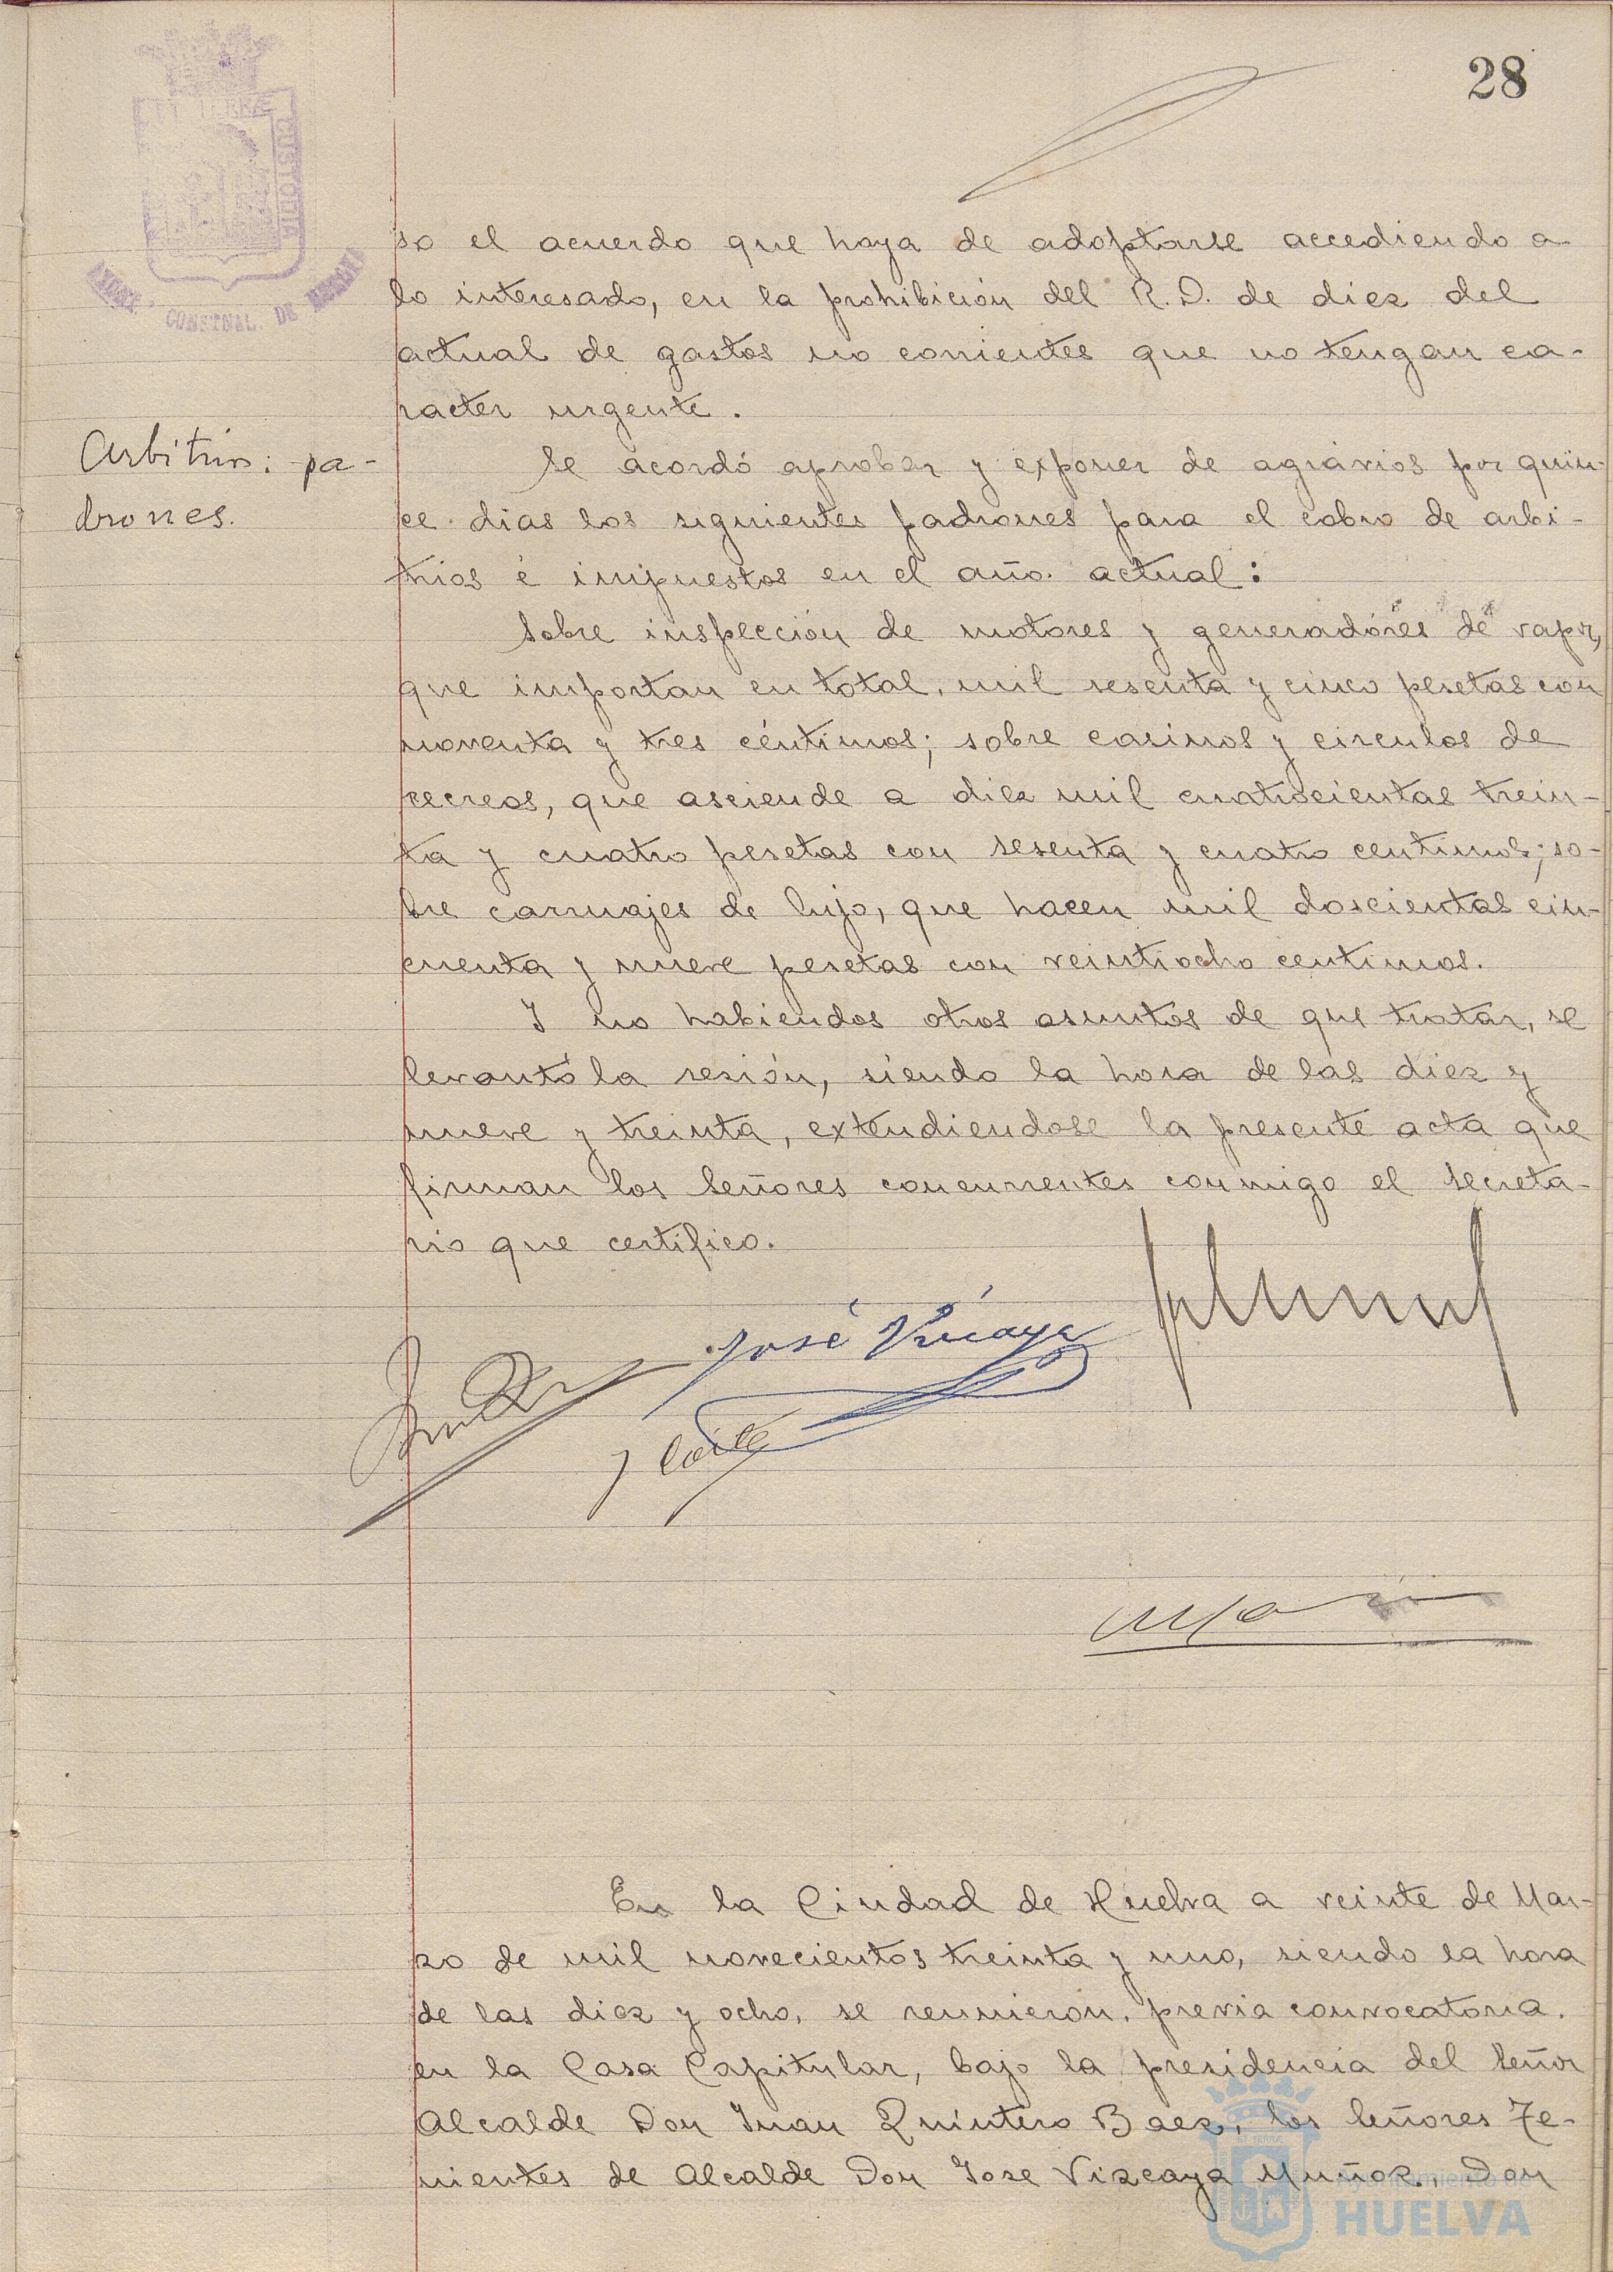 28
TERRÆ
CUSTODIA
CONSTNAL. DE
so el acuerdo que haya de adoptarse accediendo a
lo interesado, en la prohibición del R.D. de diez del
actual de gastos no corrientes que no tengan ca-
racter urgente.
Arbitrios: pa-
drones.
Se acordó aprobar y exponer de agravios por quin-
ce dias los siguientes padrones para el cobro de arbi-
trios é impuestos en el año actual:
Sobre inspección de motores y generadores de vapor,
que importan en total, mil sesenta y cinco pesetas con
noventa y tres céntimos; sobre casinos y circulos de
recreos, que asciende a diez mil cuatrocientas trein-
ta y cuatro pesetas con sesenta y cuatro centimos; so-
bre carruajes de lujo, que hacen mil doscientas cin-
cuenta y nueve pesetas con veintiocho centimos.
Y no habiendos otros asuntos de que tratar, se
levantó la sesión, siendo la hora de las diez y
nueve y treinta, extendiendose la presente acta que
firman los Señores concurrentes conmigo el Secreta-
rio que certifico.
José Vizcaya
En la Ciudad de Huelva a veinte de Mar-
zo de mil novecientos treinta y uno, siendo la hora
de las diez y ocho, se reunieron, previa convocatoria,
en la Casa Capitular, bajo la presidencia del Señor
Alcalde Don Juan Quintero Baez, los Señores Te-
nientes de Alcalde Don Jose Vizcaya Muñoz, Don
Ayuntamiento de
HUELVA